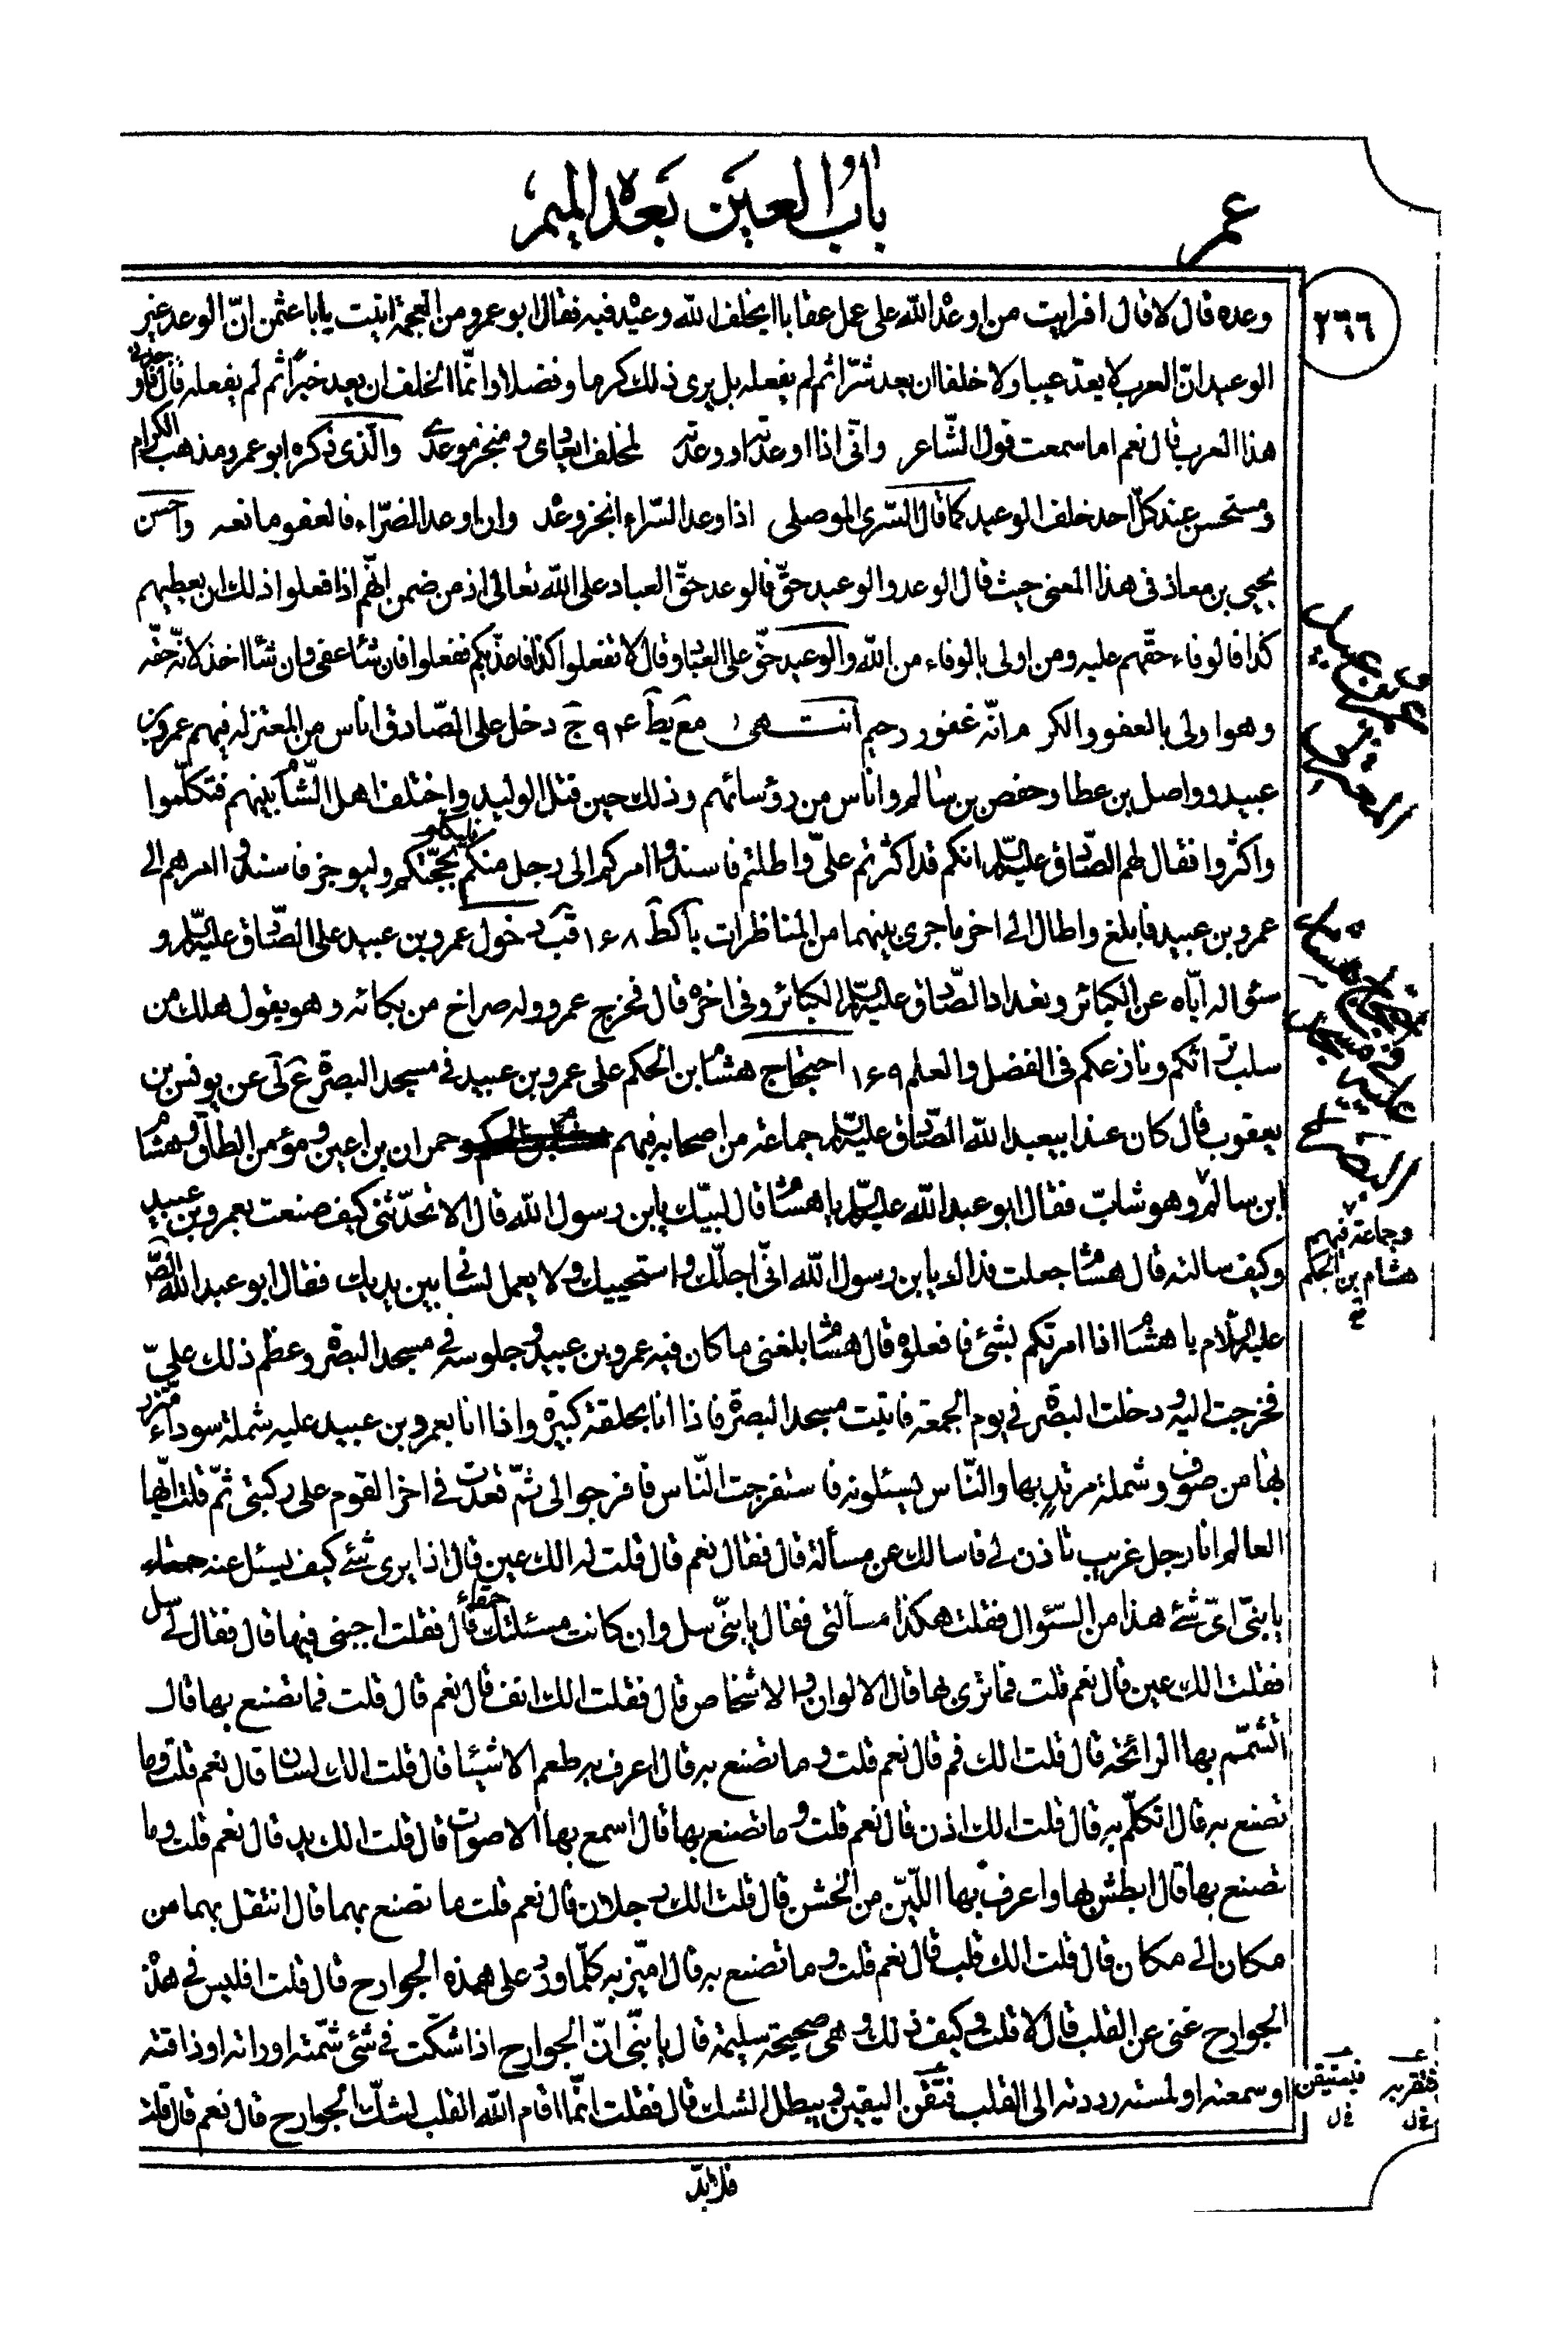 عمر
باب العين بعده الميم
٢٦٦
وعده قال لا قال افرايت من اوعد الله على عمل عقابا ايخلف الله وعيده فيه فقال ابو عمرو من العجمة اتيت يا ابا عثمن انّ الوعد غير
الوعيد انّ العرب لا يعدّ عيبا ولا خلفا ان يعد شرّا ثم لم يفعله بل يرى ذلك كرما وفضلا وانّما الخلف ان يعد خيرا ثم لم يفعله قال فاوجدنى
هذا العرب قال نعم اما سمعت قول الشّاعر وانّى اذا اوعدته او وعدته لمخلف ايعادى ومنجز موعدى والّذى ذكره ابو عمرو مذهب الكرام
ومستحسن عند كلّ احد خلف الوعيد كما قال السّرى الموصلى اذا وعد السّراء انجز وعده وان اوعد الضرّاء فالعفو مانعه واحسن
يحيى بن معاذ فى هذا المعنى حيث قال الوعد والوعيد حقّ فالوعد حقّ العباد على الله تعالى اذ من ضمن انّهم اذا فعلوا ذلك ان يعطيهم
كذا فالوفاء حقّهم عليه ومن اولى بالوفاء من الله والوعيد حقّ على العباد وقال لا تفعلوا كذا فاعذّبكم ففعلوا فان شاء عفى وان شاء اخذ لانّه حقّه
وهو اولى بالعفو والكرم انّه غفور رحيم انتهى مع يط ٩٤ ج دخل على الصّادق اناس من المعتزله فيهم عمرو بن
عبيد وواصل بن عطا وحفص بن سالم واناس من رؤسائهم وذلك حين قتل الوليد واختلف اهل الشّام بينهم فتكلّموا
واكثروا فقال لهم الصّادق عليه السّلم انكم قد اكثرتم علىّ واطلتم فاسندوا امركم الى رجل منكم فليتكلم بحجّتكم وليوجز فاسندوا امرهم الى
عمرو بن عبيد فابلغ واطال الى اخر ما جرى بينهما من المناظرات يا كط ١٦٨ قب دخول عمرو بن عبيد على الصّادق عليه السّلم و
سئواله ايّاه عن الكبائر وتعداد الصّادق عليه السّلم الكبائر وفى اخره قال فخرج عمرو وله صراخ من بكائه وهو يقول هلك من
سلب تراثكم ونازعكم فى الفضل والعلم ١٦٩ احتجاج هشام بن الحكم على عمرو بن عبيد فى مسجد البصرة ع لى عن يونس بن
يعقوب قال كان عند ابيعبد الله الصّادق عليه السّلم جماعة من اصحابه فيهم حمران بن اعين ومؤمن الطاق وهشام
ابن سالم وهو شابّ فقال ابو عبد الله عليه السّلم يا هشام قال لبّيك يابن رسول الله قال الا تحدّثنى كيف صنعت بعمرو بن عبيد
وكيف سالته قال هشام جعلت فداك يابن رسول الله انّى اجلّك واستحييك ولا يعمل لسانى بين يديك فقال ابو عبد الله الصّ
عليه السّلام يا هشام اذا امرتكم بشئى فافعلوه قال هشام بلغنى ما كان فيه عمرو بن عبيد وجلوسه فى مسجد البصرة وعظم ذلك علىّ
فخرجت اليه ودخلت البصرة فى يوم الجمعة فاتيت مسجد البصرة فاذا انا بحلقة كبيرة واذا انا بعمرو بن عبيد عليه شملة سوداء متّزر
بها من صوف وشملة مرتدٍ بها والنّاس يسئلونه فاستفرجت النّاس فافرجوا لى ثمّ قعدت فى اخر القوم على ركبتى ثمّ قلت ايّها
العالم انا رجل غريب تاذن لى فاسالك عن مسألة قال فقال نعم قال قلت له الك عين قال اذا يرى شئ كيف يسئل عنه
يا بنىّ اىّ شئ هذا من السّئوال فقلت هكذا مسألتى فقال يا بنىّ سل وان كانت مسئلتك حمقاء قال فقلت اجبنى فيها قال فقال لى سل
فقلت الك عين قال نعم قلت فما ترى بها قال الالوان والاشخاص قال فقلت الك انف قال نعم قال قلت فما تصنع بها قال
اتشمّم بها الرائحة قال قلت الك فم قال نعم قلت وما تصنع به قال اعرف به طعم الاشياء قال قلت الك لسان قال نعم قلت وما
تصنع به قال اتكلّم به قال قلت الك اذن قال نعم قلت وما تصنع بها قال اسمع بها الاصوات قال قلت الك يد قال نعم قلت وما
تصنع بها قال ابطش بها واعرف بها اللّين من الخشن قال قلت الك رجلان قال نعم قلت ما تصنع بهما قال انتقل بهما من
مكان الى مكان قال قلت الك قلب قال نعم قلت وما تصنع به قال اميّز به كلّما ورد على هذه الجوارح قال قلت افليس فى هذه
الجوارح غنى عن القلب قال لا قلت وكيف ذلك وهى صحيحة سليمة قال يا بنىّ انّ الجوارح اذا شكّت فى شئى شمّته او راته او ذاقته
او سمعته او لمسته رددته الى القلب فتقّن اليقين ويبطل الشك قال فقلت انّما اقام الله القلب لشكّ الجوارح قال نعم قال قلت
عمرو بن عبيد
المعتزلى
احتجاج هشام
على عمرو بن عبيد
فى مسجد
البصرة
وجماعة فيهم
هشام بن الحكم
خ
فيستيقن
خ ل
فتقر به
خ ل
فلا بدّ